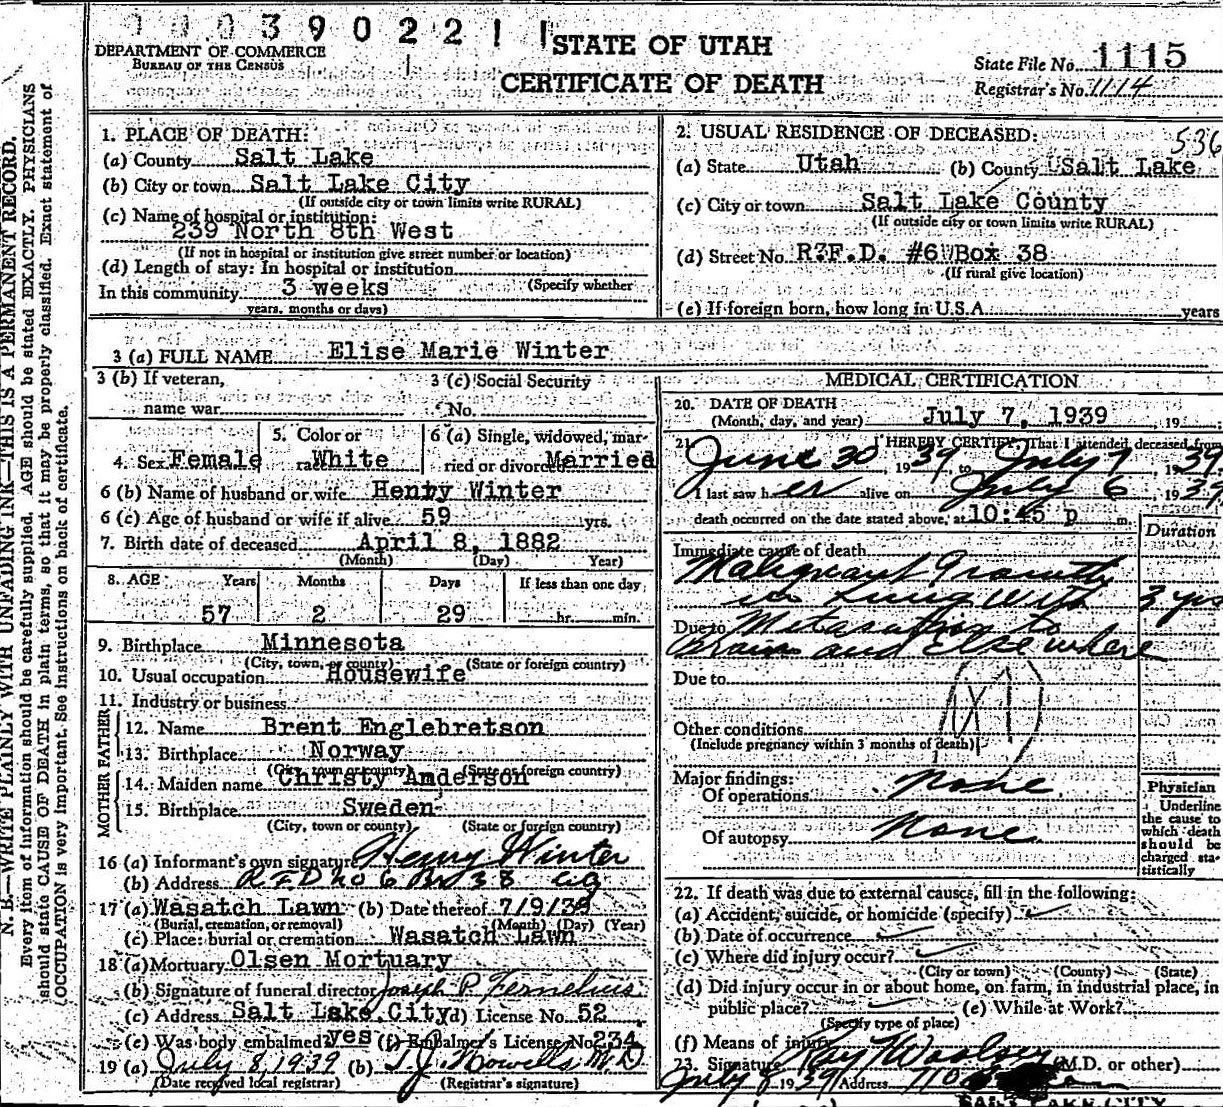 0 0 3 9 0 2 2 1
DEPARTMENT OF COMMERCE
BUREAU OF THE CENSUS
STATE OF UTAH
CERTIFICATE OF DEATH
State File No. 1115
Registrar's No. 1114
N. B.—WRITE PLAINLY WITH UNFADING INK—THIS IS A PERMANENT RECORD.
Every item of information should be carefully supplied. AGE should be stated EXACTLY. PHYSICIANS
should state CAUSE OF DEATH in plain terms, so that it may be properly classified. Exact statement of
OCCUPATION is very important. See instructions on back of certificate.
1. PLACE OF DEATH:
(a) County Salt Lake
(b) City or town Salt Lake City
(If outside city or town limits write RURAL)
(c) Name of hospital or institution:
239 North 8th West
(If not in hospital or institution give street number or location)
(d) Length of stay: In hospital or institution
(Specify whether
In this community 3 weeks
years, months or days)
2. USUAL RESIDENCE OF DECEASED:
536
(a) State Utah (b) County Salt Lake
(c) City or town Salt Lake County
(If outside city or town limits write RURAL)
(d) Street No. R.F.D. #6 Box 38
(If rural give location)
(e) If foreign born, how long in U.S.A. years
3 (a) FULL NAME Elise Marie Winter
3 (b) If veteran, 3 (c) Social Security
name war No.
4. Sex Female 5. Color or race White 6 (a) Single, widowed, married or divorced Married
6 (b) Name of husband or wife Henry Winter
6 (c) Age of husband or wife if alive 59 yrs.
7. Birth date of deceased April 8, 1882
(Month) (Day) Year)
8. AGE Years Months Days If less than one day
57 2 29 hr. min.
9. Birthplace Minnesota
(City, town, or county) (State or foreign country)
10. Usual occupation Housewife
11. Industry or business
FATHER
12. Name Brent Englebretson
13. Birthplace Norway
(City, town or county) (State or foreign country)
MOTHER
14. Maiden name Christy Anderson
15. Birthplace Sweden
(City, town or county) (State or foreign country)
16 (a) Informant's own signature Henry Winter
(b) Address RFD no 6 Bx 38 City
17 (a) Wasatch Lawn (b) Date thereof 7/9/39
(Burial, cremation, or removal) (Month) (Day) (Year)
(c) Place: burial or cremation Wasatch Lawn
18 (a) Mortuary Olsen Mortuary
(b) Signature of funeral director Joseph P. Fernelius
(c) Address Salt Lake City (d) License No. 52
(e) Was body embalmed? yes (f) Embalmer's License No. 234
19 (a) July 8, 1939 (b) T. J. Howells M D
(Date received local registrar) (Registrar's signature)
MEDICAL CERTIFICATION
20. DATE OF DEATH
(Month, day, and year) July 7, 1939 , 19
21. I HEREBY CERTIFY, That I attended deceased from
June 30, 1939 to July 7, 1939.
I last saw her alive on July 6, 1939
death occurred on the date stated above, at 10:45 p m.
Duration
Immediate cause of death
Malignant Growth
in Lung with 3 yrs
Due to Metasathion to
Brain and Elsewhere
Due to
Other conditions
(Include pregnancy within 3 months of death)
Major findings:
Of operations None
Of autopsy None
Physician
Underline
the cause to
which death
should be
charged sta-
tistically
22. If death was due to external causes, fill in the following:
(a) Accident, suicide, or homicide (specify)
(b) Date of occurrence
(c) Where did injury occur?
(City or town) (County) (State)
(d) Did injury occur in or about home, on farm, in industrial place, in
public place? (e) While at Work?
(Specify type of place)
(f) Means of injury
23. Signature Ray Woolsey (M.D. or other)
July 8 1939 Address 110
SALT LAKE CITY